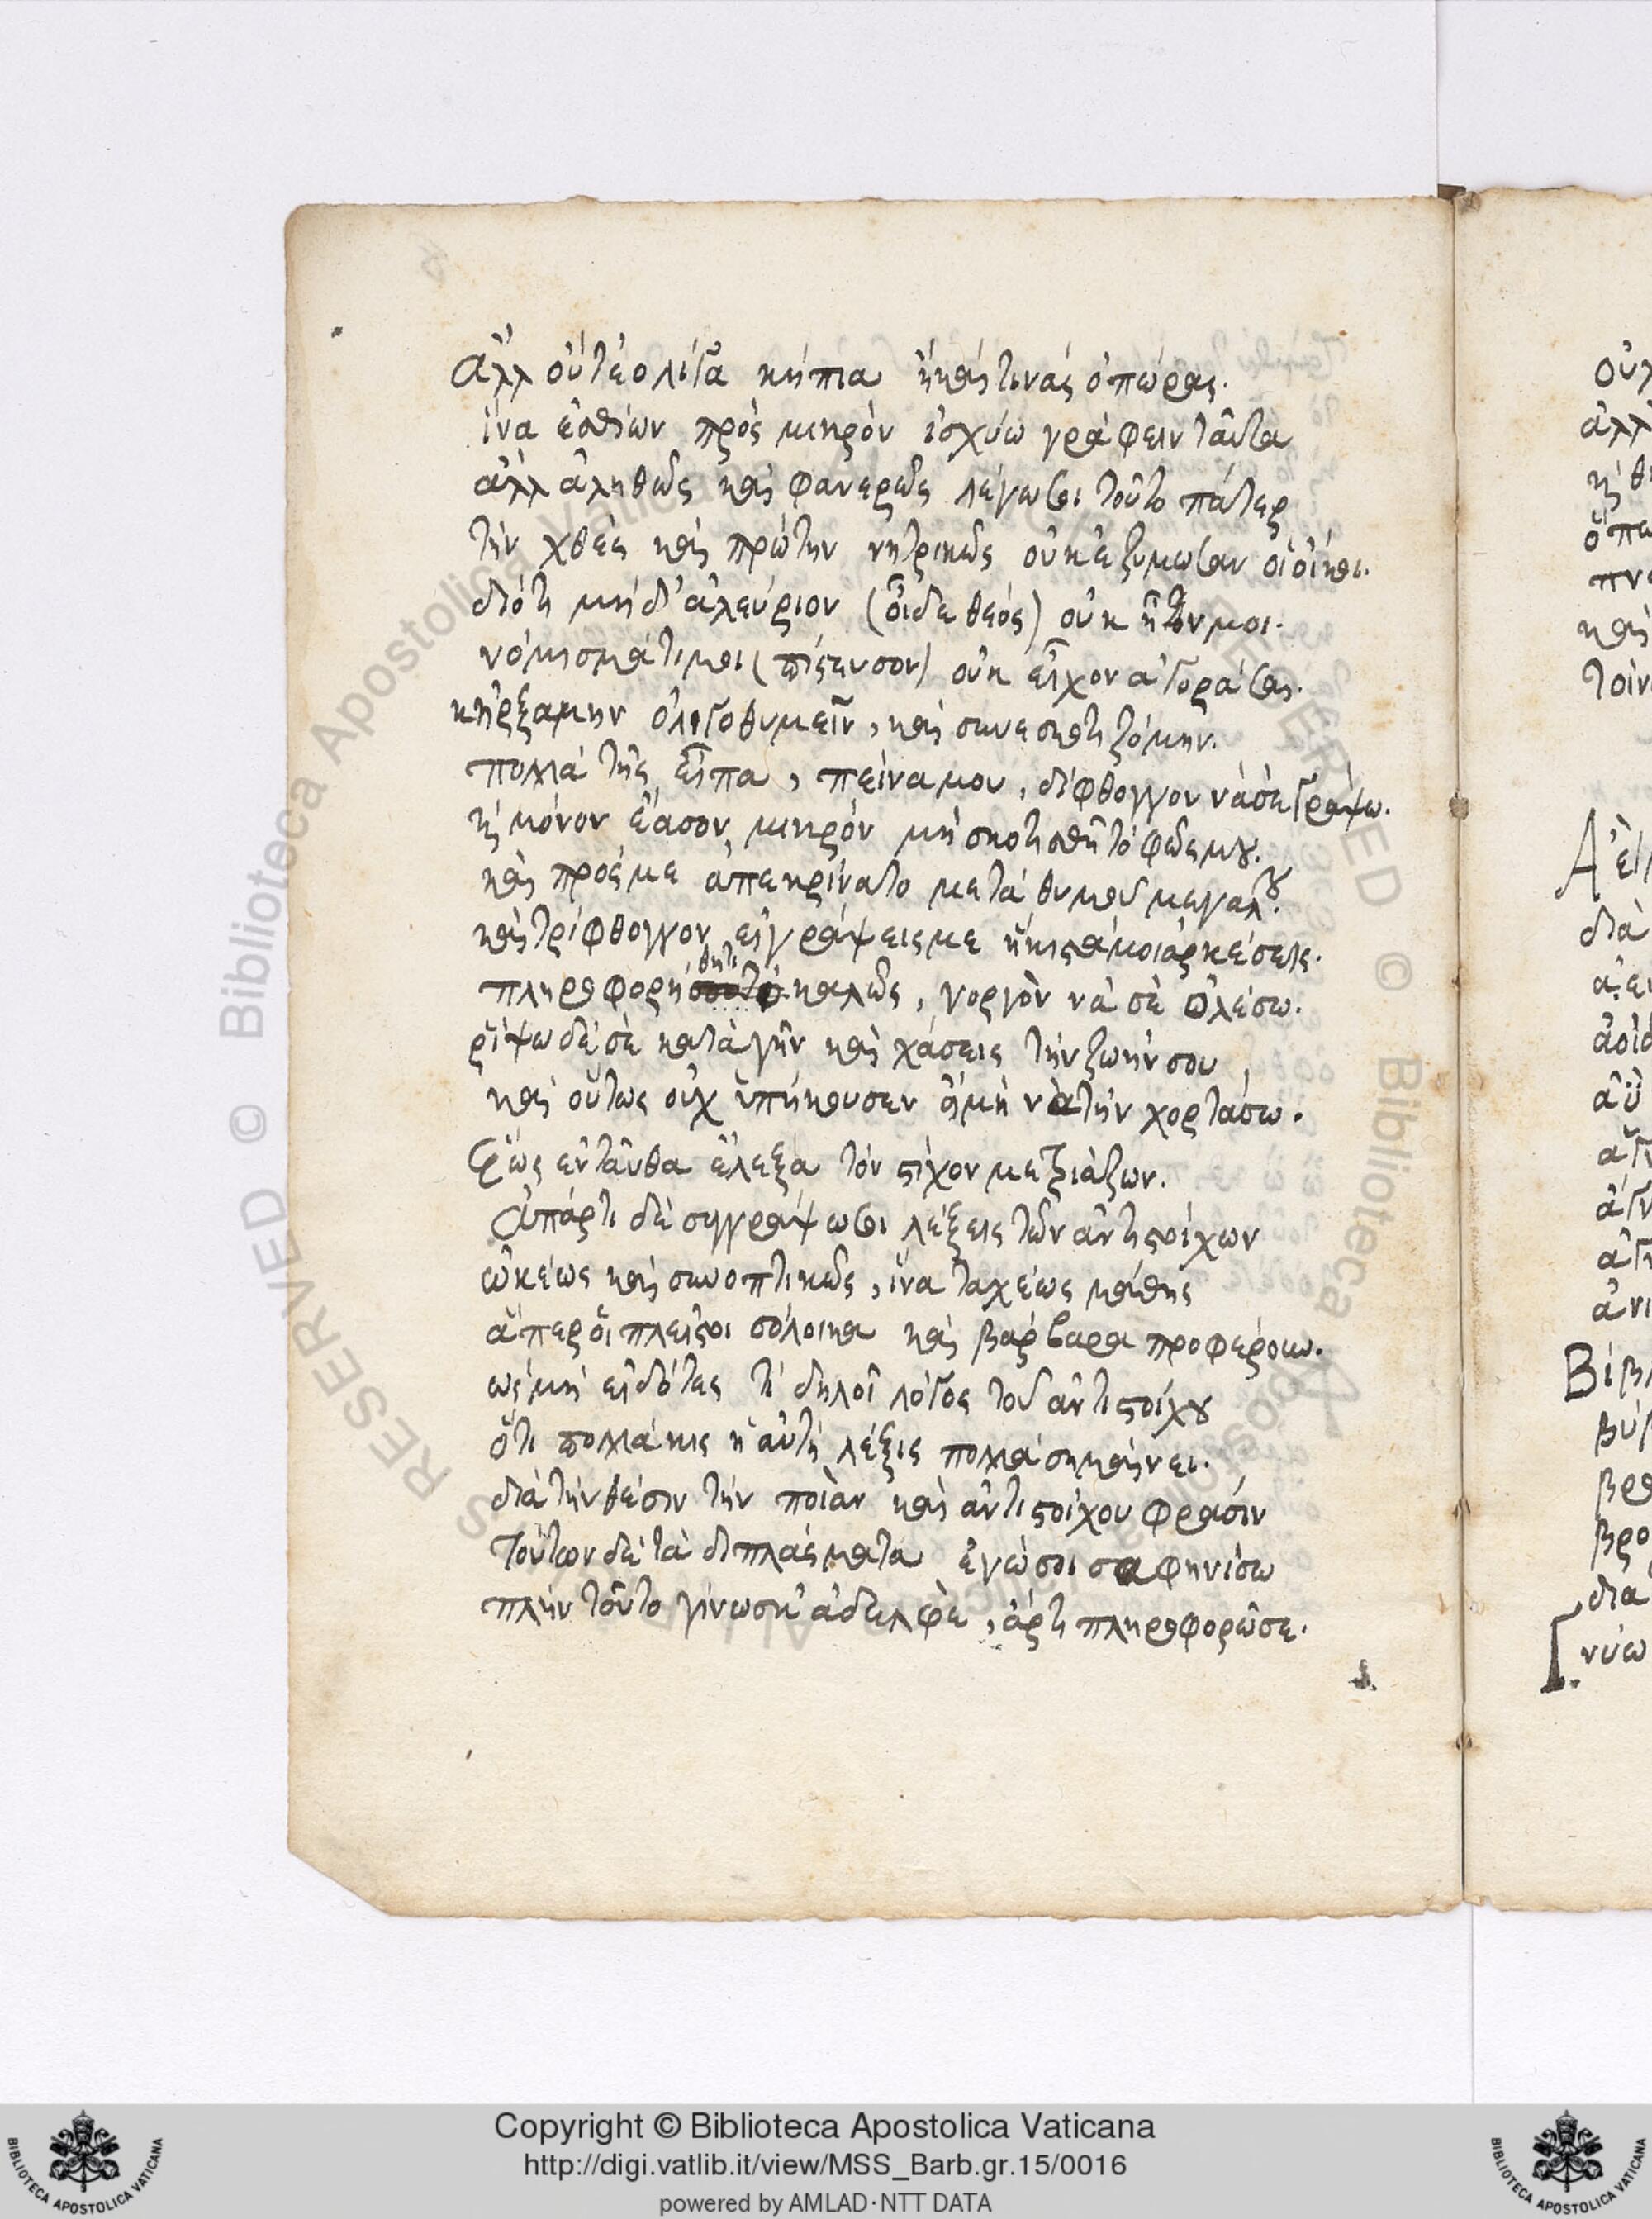 ἀλλ οὔτε ὀλίγα κήπια ἢ καὶ τινὰς ὀπώρας.
ἵνα ἐσθίων πρὸς μικρὸν ἰσχύω γράφειν ταῦτα
ἀλλ ἀληθῶς καὶ φανερῶς λέγω σοι τοῦτο πάτερ
τὴν χθὲς καὶ πρώτην νητρικῶς οὐκ ἐζύμωσαν οἱ οἴκοι.
διότι μηδ' ἀλεύριον (οἶδε θεός) οὐκ ἦτον μοι.
α
νόμισμά τι μοι (πίστευσον) οὐκ εἶχον ἀγοράσαι.
κἠρξάμην ὀλιγοθυμεῖν, καὶ συνεσκοτιζόμην.
πολλὰ τῆς εἶπα, πεῖνα μου, δίφθογγον νὰ σὲ γράψω.
κ μόνον ἔασον μικρόν μὴ σκοτισθῇ τὸ φῶς μου.
καὶ πρὸς με ἀπεκρίνατο μετὰ θυμοῦ μεγάλου.
καὶ τρίφθογγον εἰ γράψεις με ἥκιστα μοι ἀρκέσεις.
θητι
πληροφορήσου το καλῶς, γοργὸν νὰ σὲ ὀλέσω.
ρίψω δὲ σὲ κατὰ γῆν καὶ χάσεις τὴν ζωήν σου
καὶ οὕτως οὐχ ὑπήκουσεν ἀμὴ νὰ τὴν χορτάσω.
Ἕως ἐνταῦθα ἔλεξα τὸν στίχον μετριάζων.
Ἀπάρτι δὲ συγγράψω σοι λέξεις τῶν ἀντιστοίχων
ὠκέως καὶ συνοπτικῶς, ἵνα ταχέως μάθῃς
ἅπερ οἱ πλεῖστοι σόλοικα καὶ βάρβαρα προφέρουν.
ὡς μὴ εἰδότες τί δηλοῖ λόγος τοῦ ἀντιστοίχου
ὅτι πολλάκις ἡ αὐτὴ λέξις πολλὰ σημαίνει.
διὰ τὴν θέσιν τὴν ποιὰν καὶ ἀντιστοίχου φράσιν
Τούτων δὲ τὰ διπλάσματα ἐγώ σοι σαφηνίσω
πλὴν τοῦτο γίνωσκ' ἀδελφὲ, ἄρτι πληροφορῶ σε.
Copyright © Biblioteca Apostolica Vaticana
http://digi.vatlib.it/view/MSS_Barb.gr.15/0016
powered by AMLAD·NTT DATA